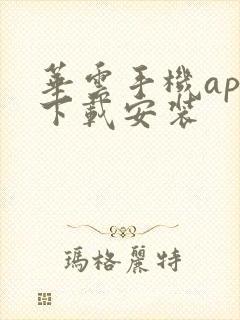 華雲手機ap
下載安裝
瑪格麗特